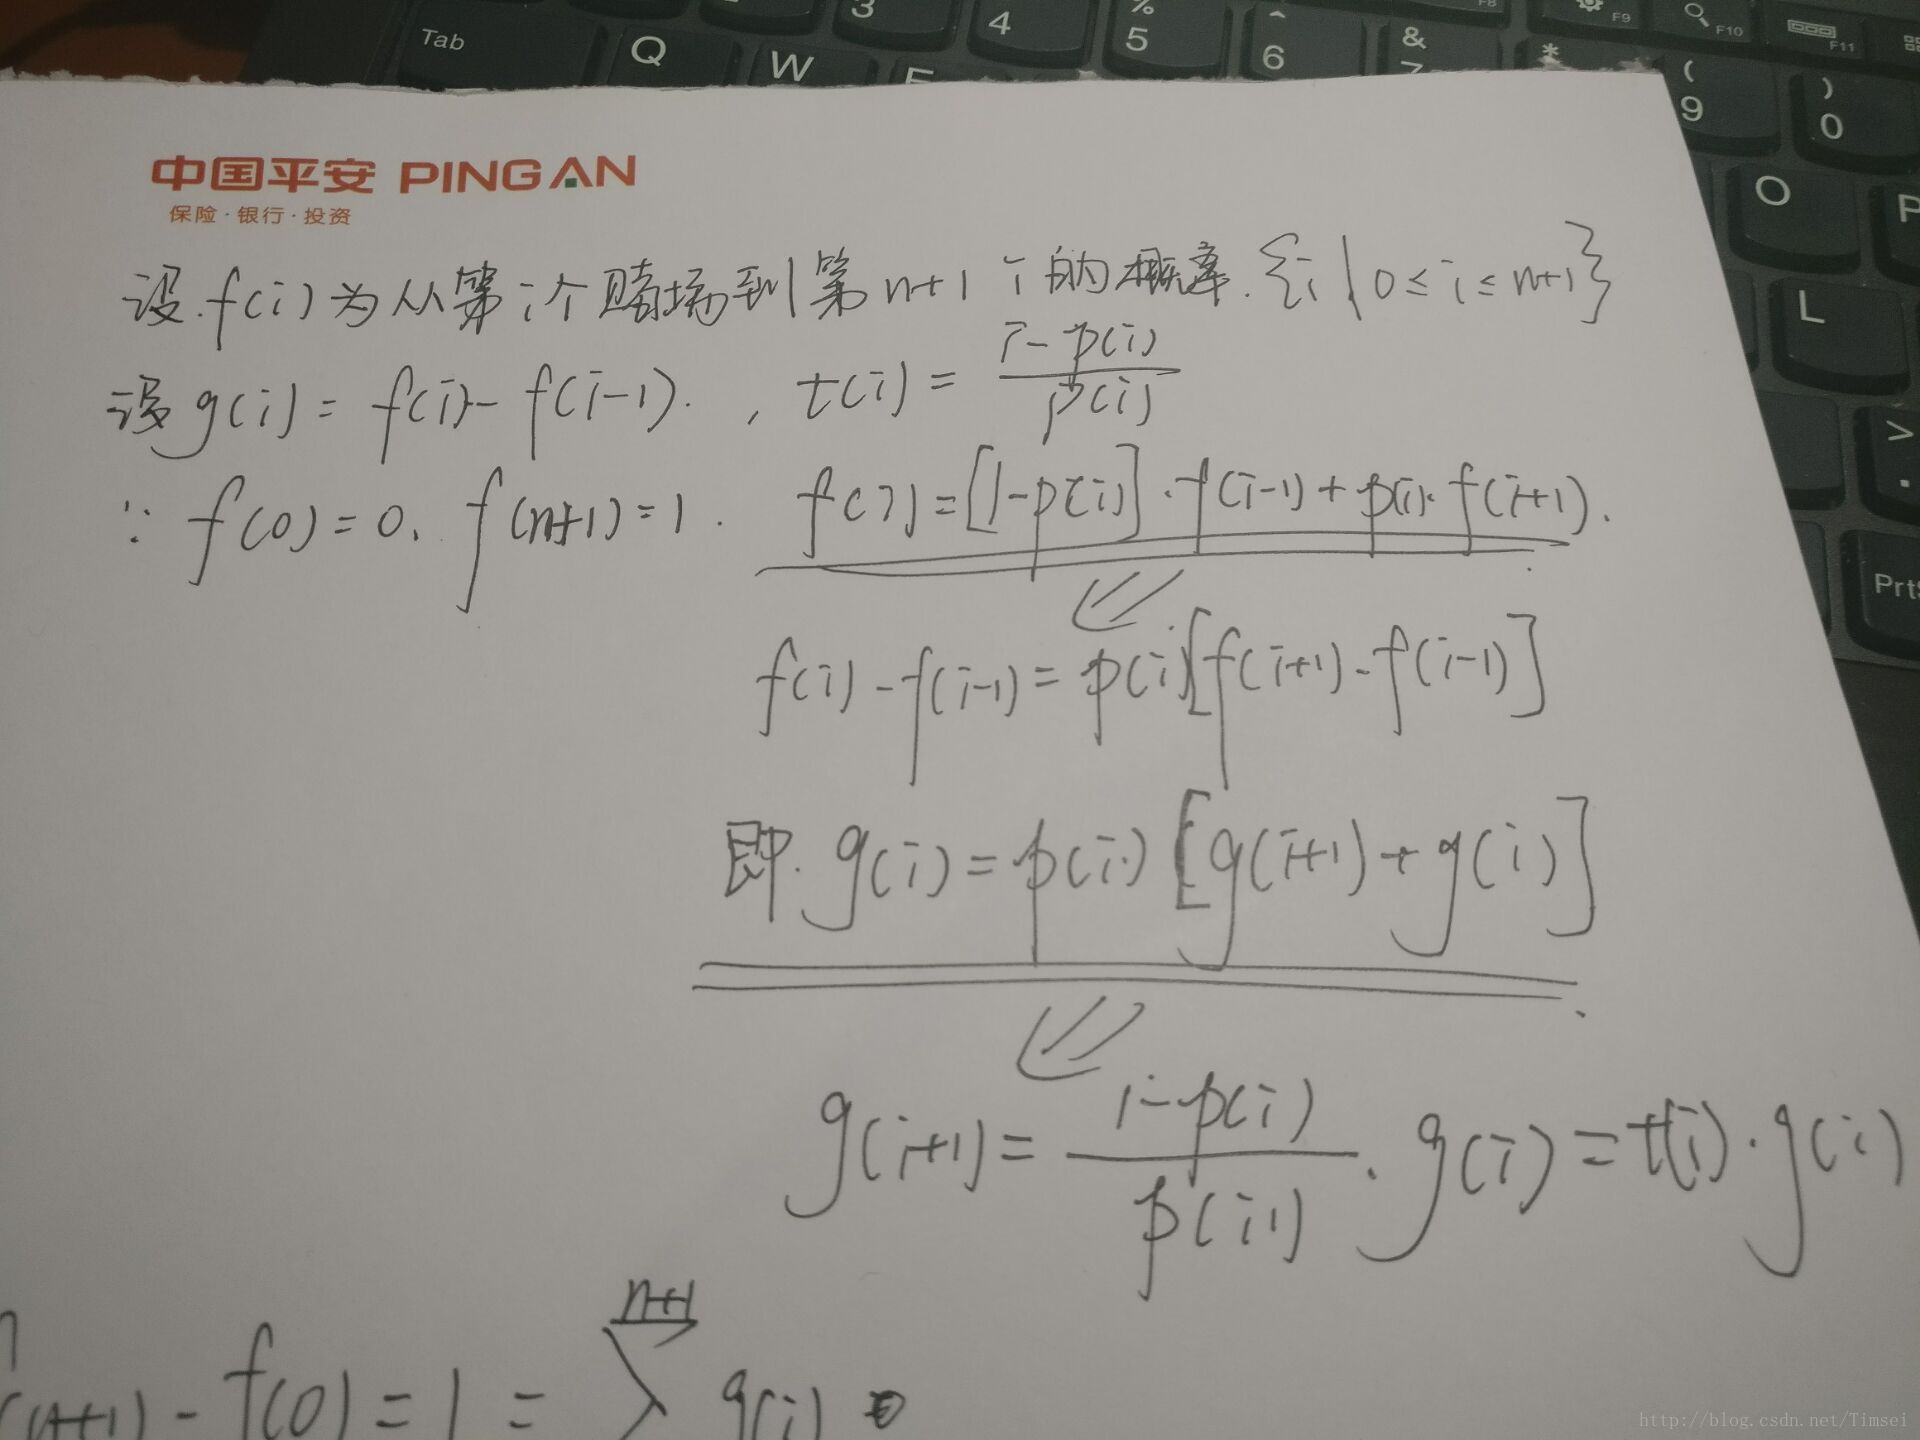 Tab Q W 3 4 % 5 ^ 6 & 7 * ( 9 ) 0 F8 F9 F10 F11 O P L > . PrtS
中国平安 PINGAN
保险·银行·投资
设.f(i)为从第i个赌场到第n+1个的概率.{i | 0≤i≤n+1}
设g(i)=f(i)-f(i-1). , t(i)=\frac{1-p(i)}{p(i)}
∵ f(0)=0. f(n+1)=1. f(i)=[1-p(i)]·f(i-1)+p(i)·f(i+1).
f(i)-f(i-1)=p(i)[f(i+1)-f(i-1)]
即.g(i)=p(i)[g(i+1)+g(i)]
g(i+1)=\frac{1-p(i)}{p(i)}·g(i)=t(i)·g(i)
f(n+1)-f(0)=1=\sum^{n+1} g(i)
http://blog.csdn.net/Timsei